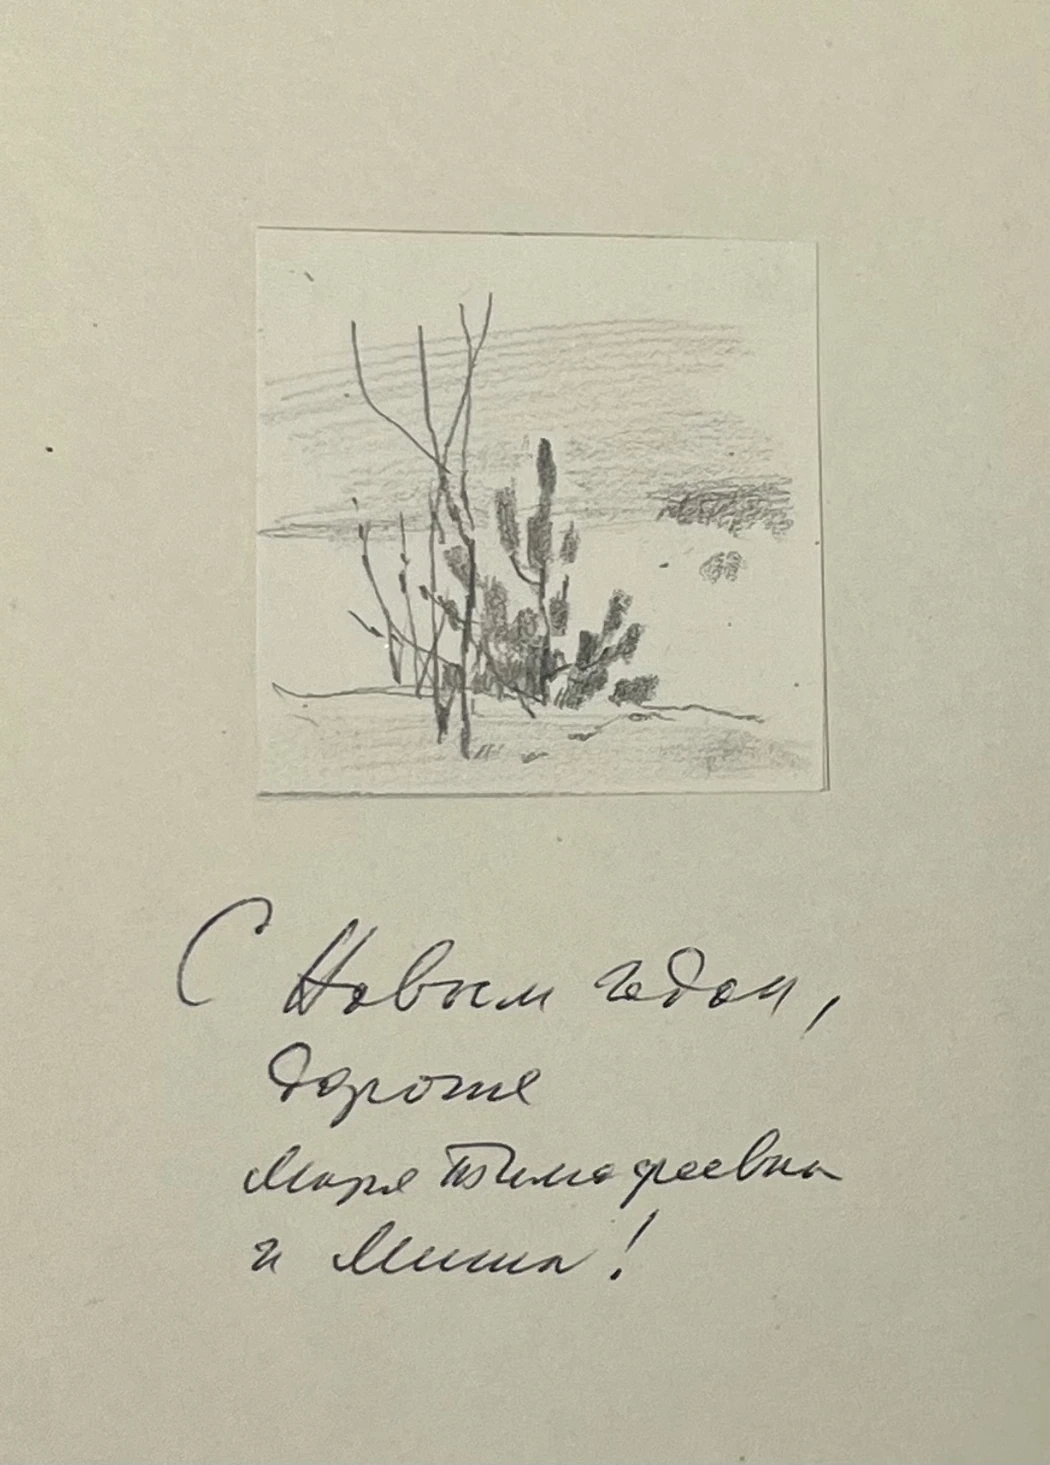 С Новым годом,
дорогие
Мария Тимофеевна
и Миша!